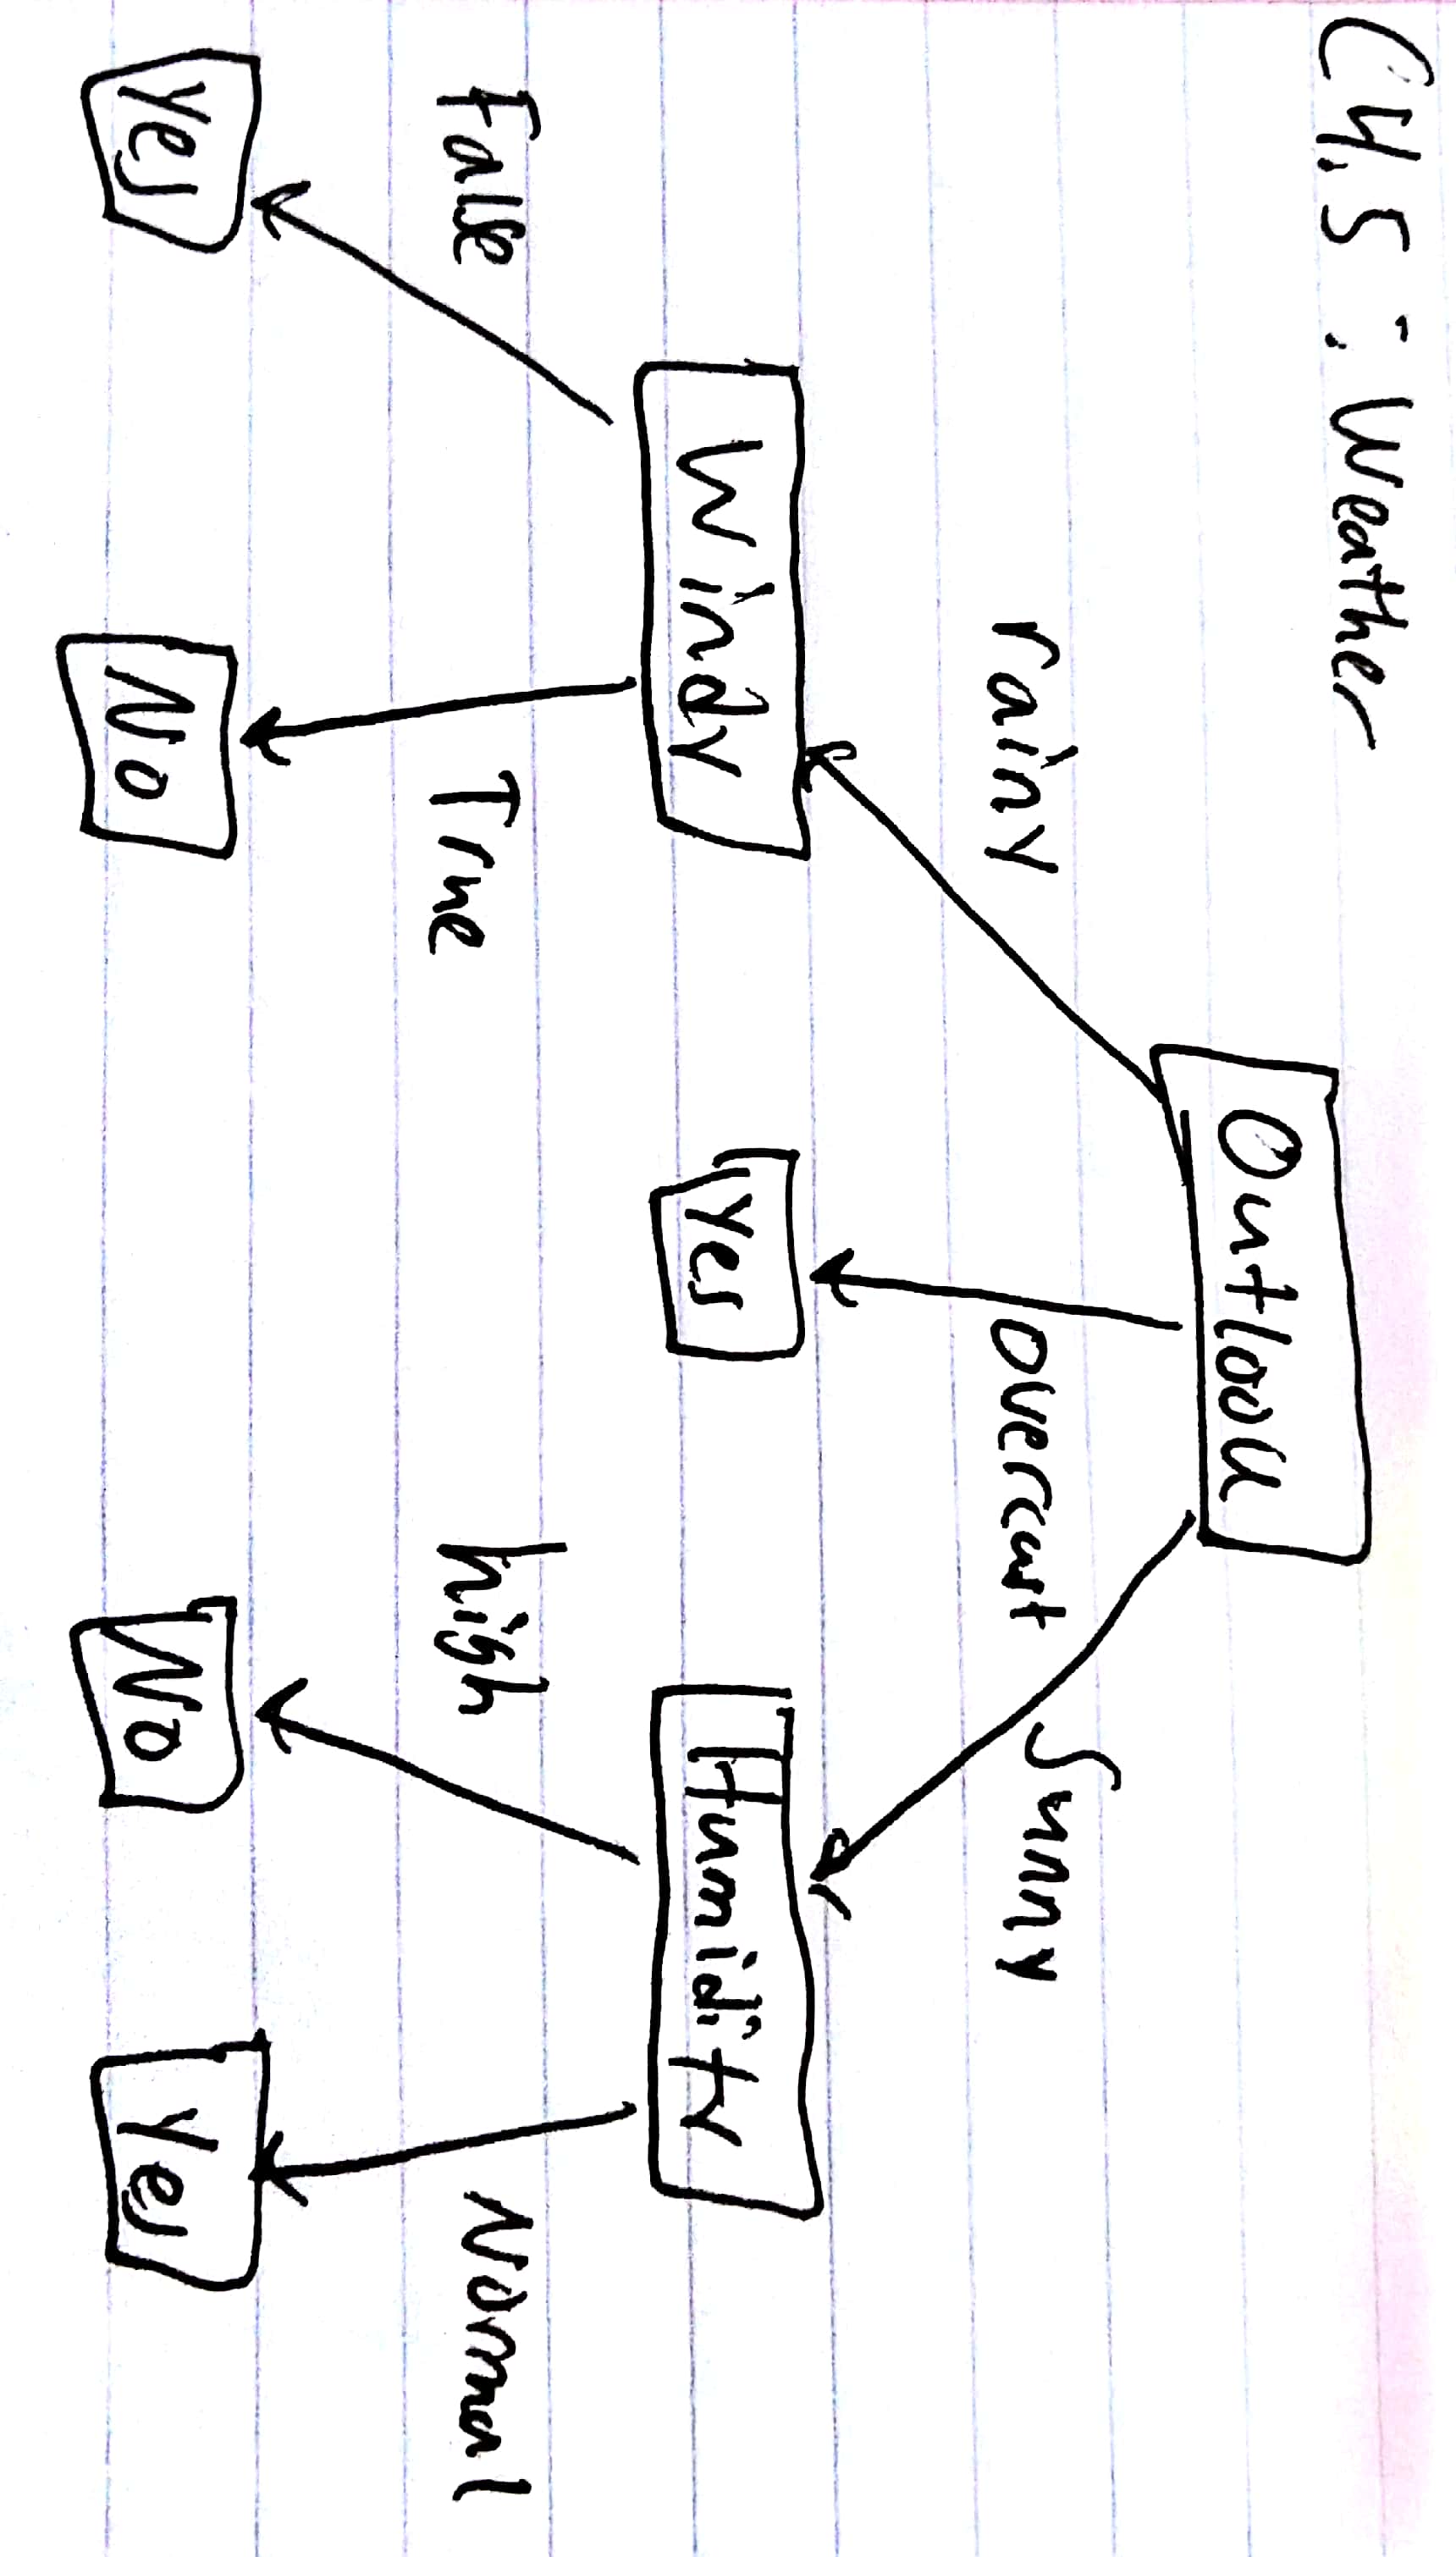 C4.5 : Weather
Outlook
rainy
Overcast
Sunny
Windy
Yes
Humidity
False
True
high
Normal
Yes
No
No
Yes